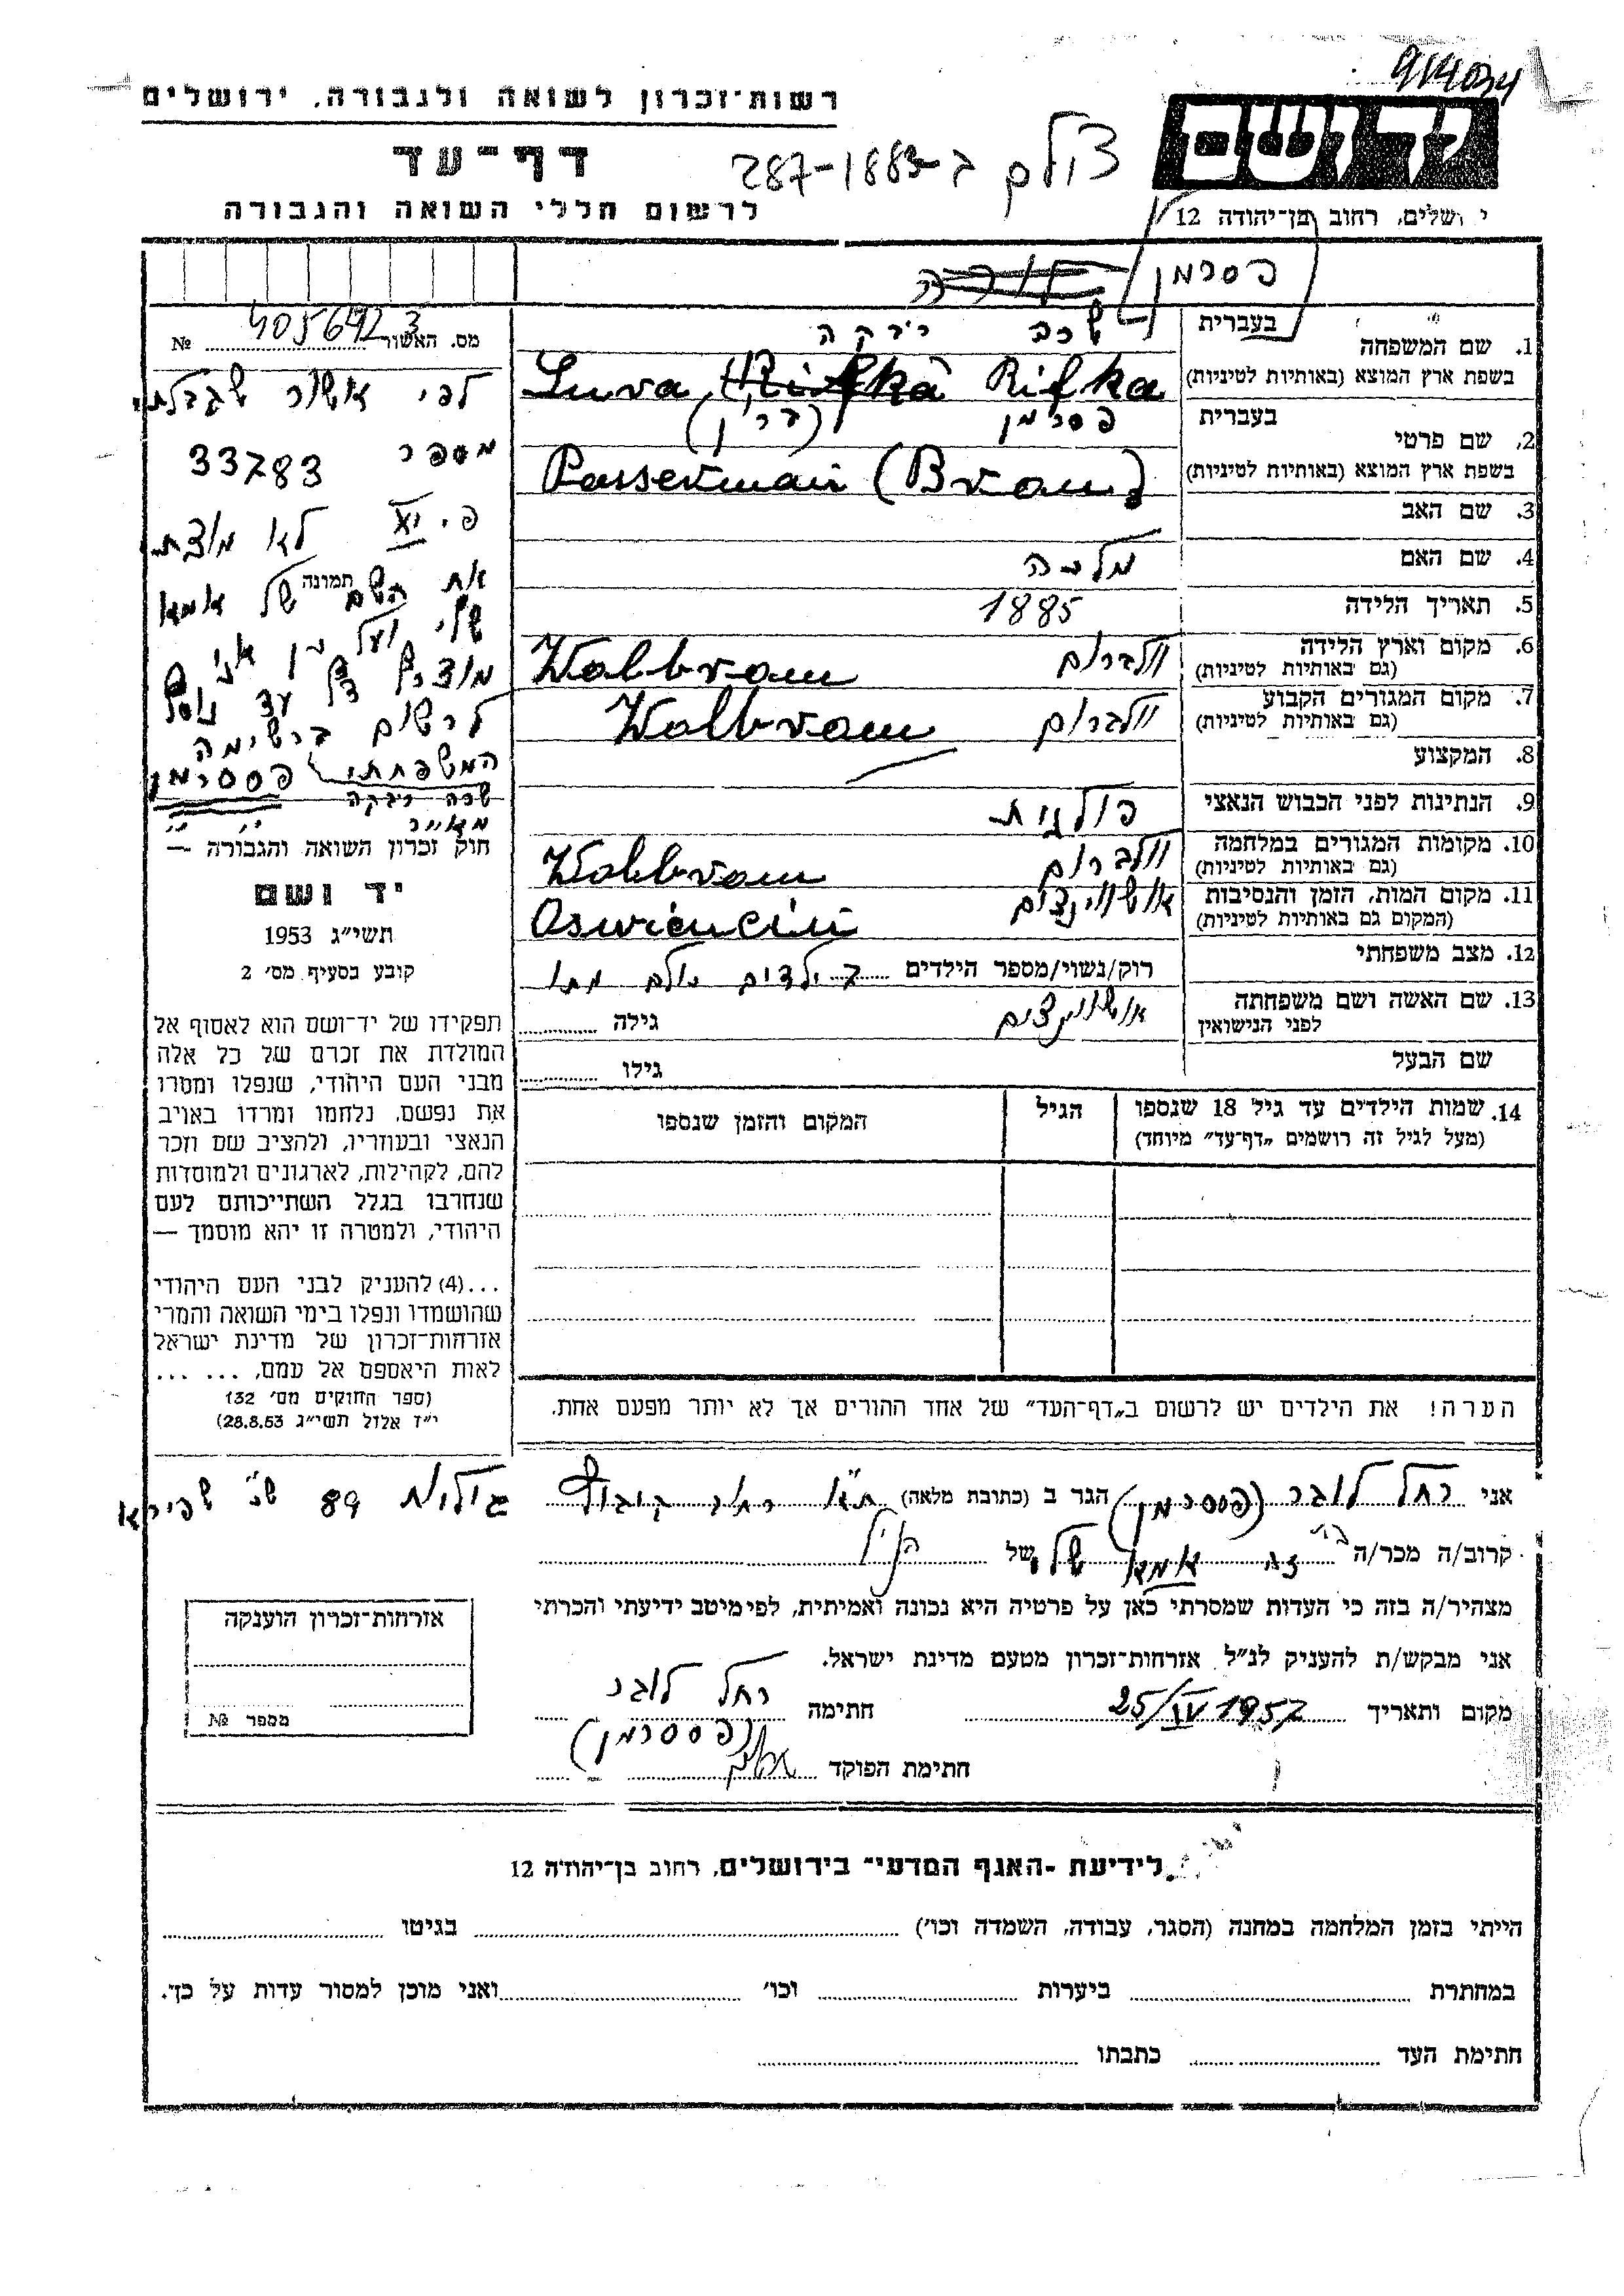 רשות־זכרון לשואה ולגבורה, ירושלים
דף־עד
לרשום חללי השואה והגבורה
צולם ב 287-1883
ידושם
ירושלים, רחוב בן־יהודה 12
פסרמן
מס. האשור 4056423 №
1. שם המשפחה
בעברית
שרה ריבקה
בשפת ארץ המוצא (באותיות לטיניות)
Sura Rifka Rifka
2. שם פרטי
בעברית
פסרמן (ברון)
בשפת ארץ המוצא (באותיות לטיניות)
Passerman (Braun)
3. שם האב
4. שם האם
מלכה
5. תאריך הלידה
1885
6. מקום וארץ הלידה
(גם באותיות לטיניות)
וולברום Wolbrom
7. מקום המגורים הקבוע
(גם באותיות לטיניות)
וולברום Wolbrom
8. המקצוע
9. הנתינות לפני הכבוש הנאצי
פולנית
10. מקומות המגורים במלחמה
(גם באותיות לטיניות)
וולברום Wolbrom
11. מקום המות, הזמן והנסיבות
(המקום גם באותיות לטיניות)
אושווינצים Oswiencim
12. מצב משפחתי
רוק/נשוי/מספר הילדים ילדים כולם מתו
13. שם האשה ושם משפחתה
לפני הנישואין
אושווינצים
גילה
שם הבעל
גילו
14. שמות הילדים עד גיל 18 שנספו
(מעל לגיל זה רושמים "דף־עד" מיוחד)
הגיל
המקום והזמן שנספו
הערה! את הילדים יש לרשום ב"דף־העד" של אחד ההורים אך לא יותר מפעם אחת.
לפי אשור שקבלתי
מספר
33783
לא מוצאת
את השם של אמא
תמונה
שלי ועל כן אני
דף עד נוסף
לרשום ברשימה
המשפחתי פססרמן
שרה ריבקה
חוק זכרון השואה והגבורה —
יד ושם
תשי"ג 1953
קובע בסעיף מס' 2
תפקידו של יד־ושם הוא לאסוף אל
המולדת את זכרם של כל אלה
מבני העם היהודי, שנפלו ומסרו
את נפשם, נלחמו ומרדו באויב
הנאצי ובעוזריו, ולהציב שם וזכר
להם, לקהילות, לארגונים ולמוסדות
שנחרבו בגלל השתייכותם לעם
היהודי, ולמטרה זו יהא מוסמך —
...(4) להעניק לבני העם היהודי
שהושמדו ונפלו בימי השואה והמרי
אזרחות־זכרון של מדינת ישראל
לאות היאספם אל עמם, ... ...
(ספר החוקים מס' 132
י"ז אלול תשי"ג 28.8.53)
אני רחל לוגר (פססרמן) הגר ב (כתובת מלאה) ת"א 89 שפירא
קרוב/ה מכר/ה זה אמא שלי של הנ"ל
מצהיר/ה בזה כי העדות שמסרתי כאן על פרטיה היא נכונה ואמיתית, לפי מיטב ידיעתי והכרתי
אני מבקש/ת להעניק לנ"ל אזרחות־זכרון מטעם מדינת ישראל.
מקום ותאריך 25/IV 1957 חתימה רחל לוגר
(פססרמן)
חתימת הפוקד
אזרחות־זכרון הוענקה
מספר №
לידיעת ־האגף המדעי־ בירושלים, רחוב בן־יהודה 12
הייתי בזמן המלחמה במחנה (הסגר, עבודה, השמדה וכו') בגיטו
במחתרת ביערות וכו' ואני מוכן למסור עדות על כך.
חתימת העד כתבתו